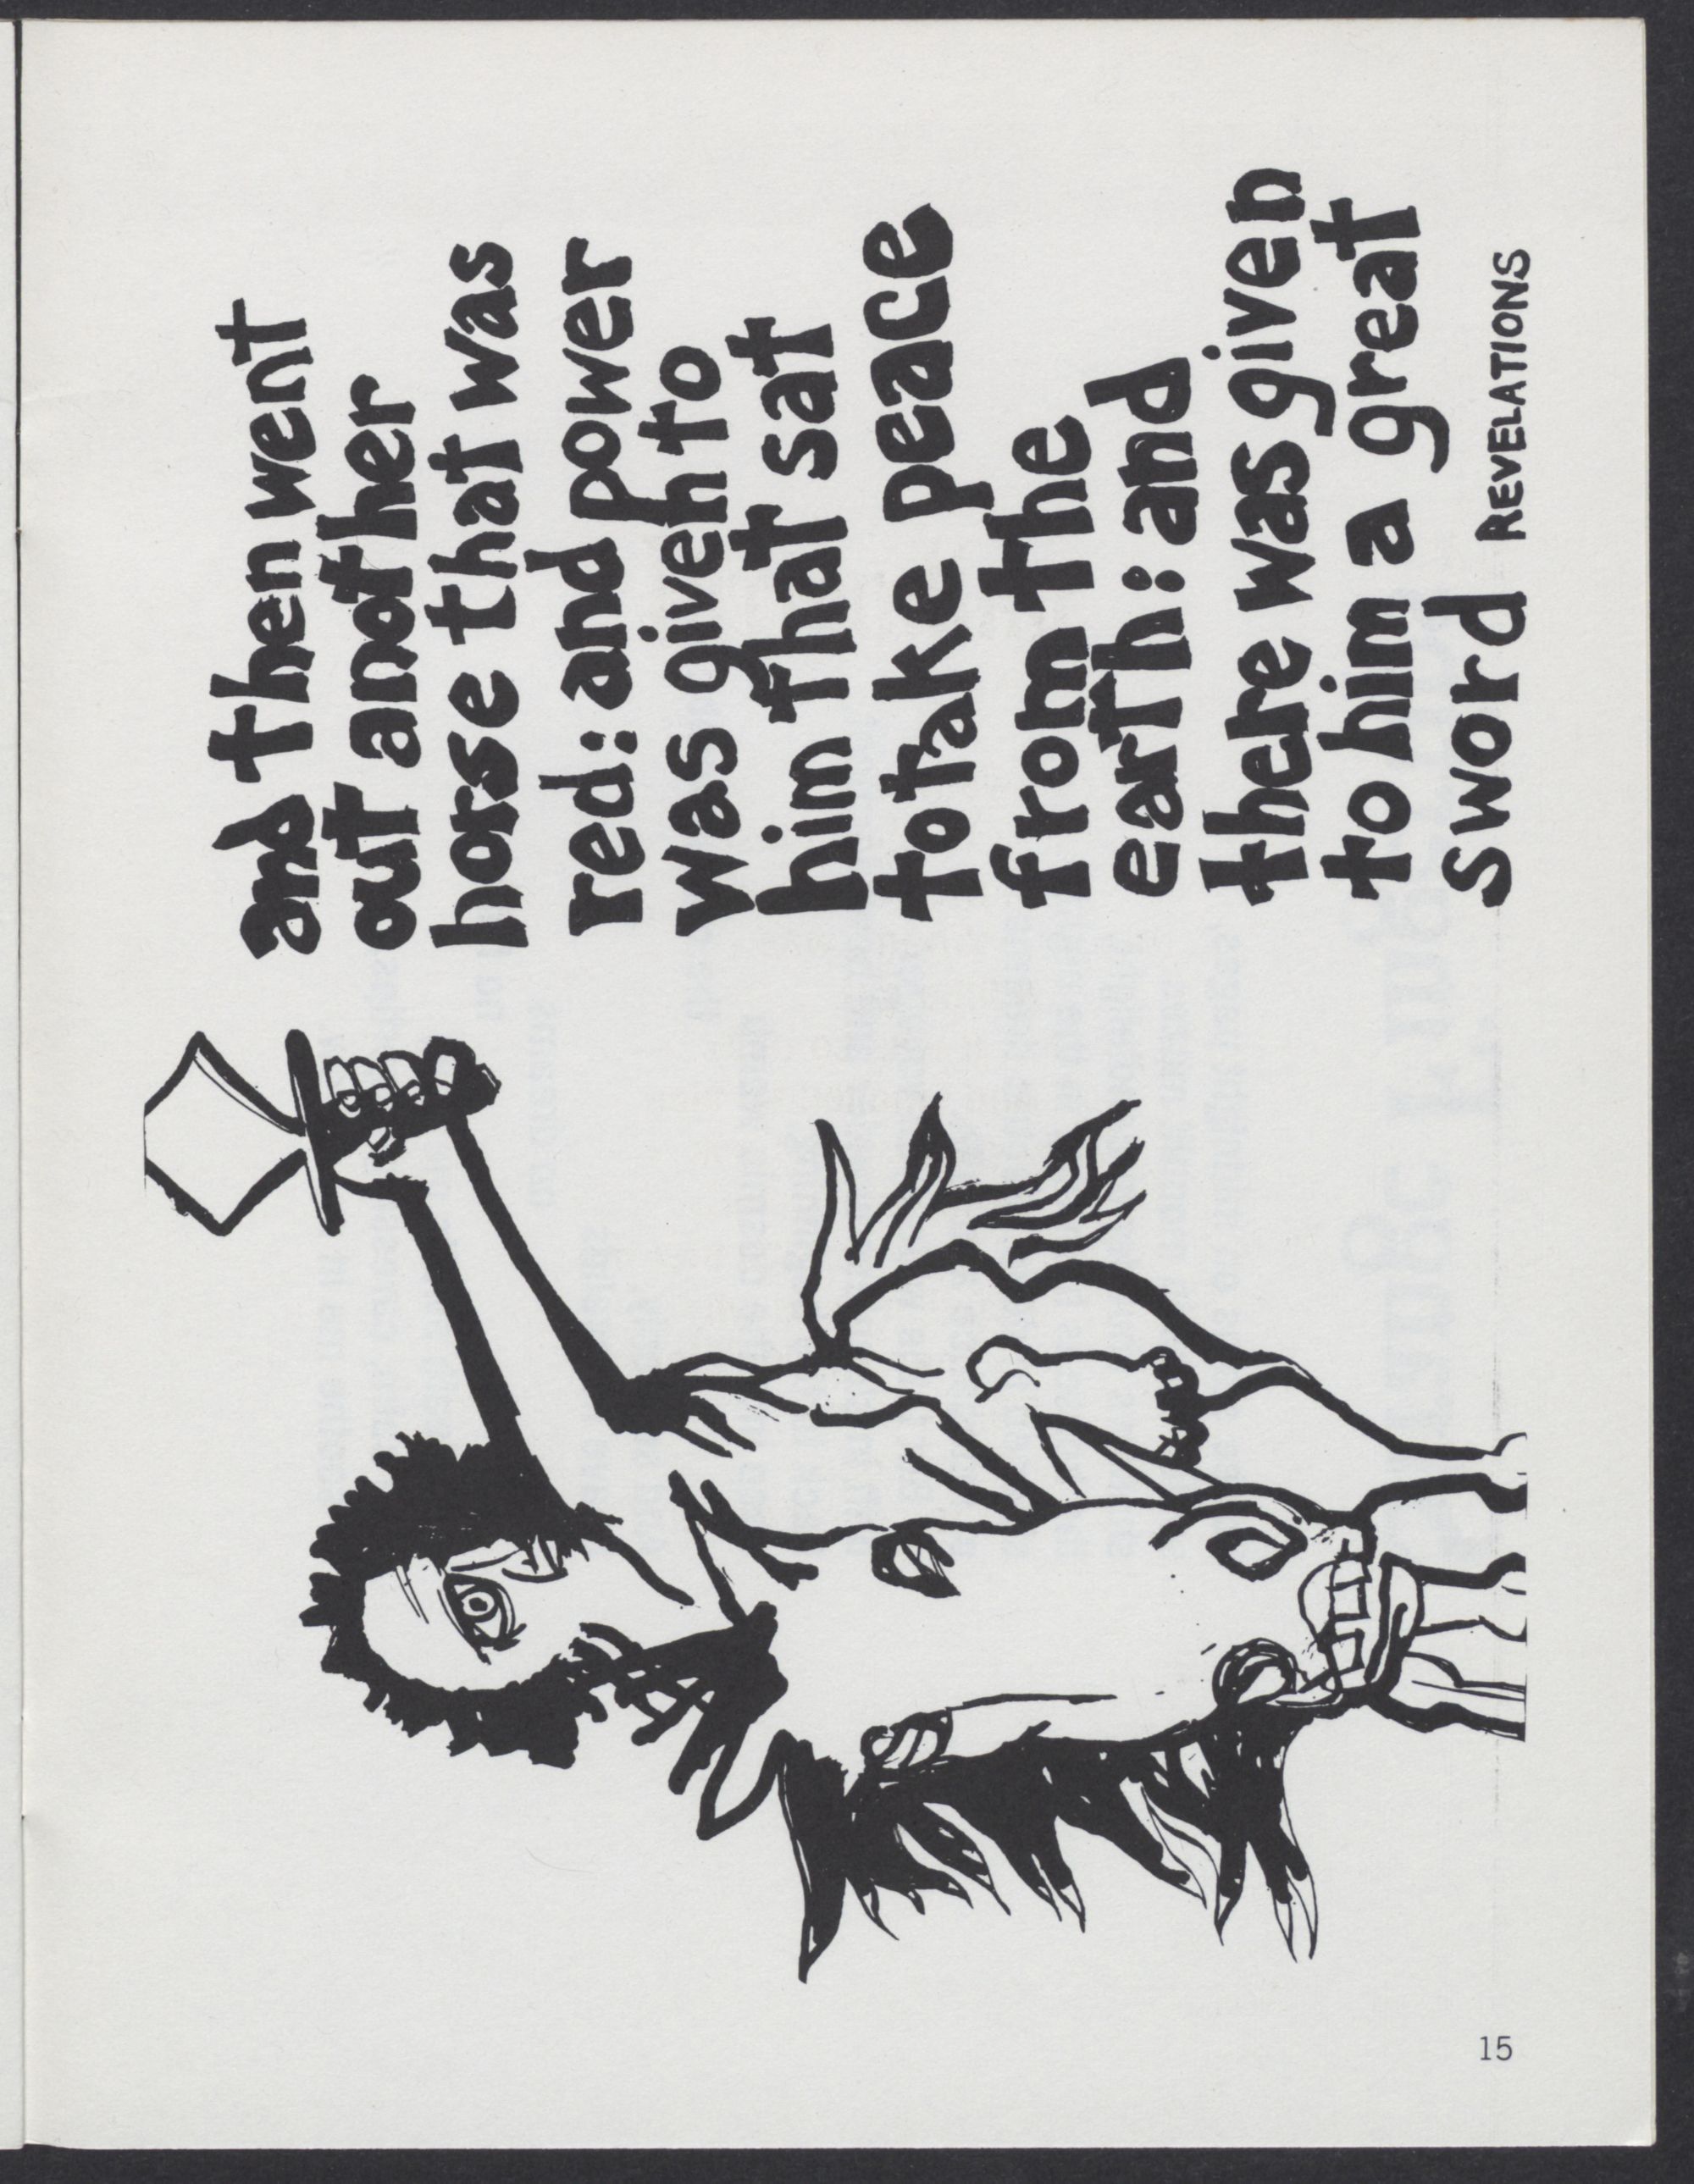 and then went
out another
horse that was
red: and power
was given to
him that sat
to take peace
from the
earth: and
there was given
to him a great
sword REVELATIONS
15